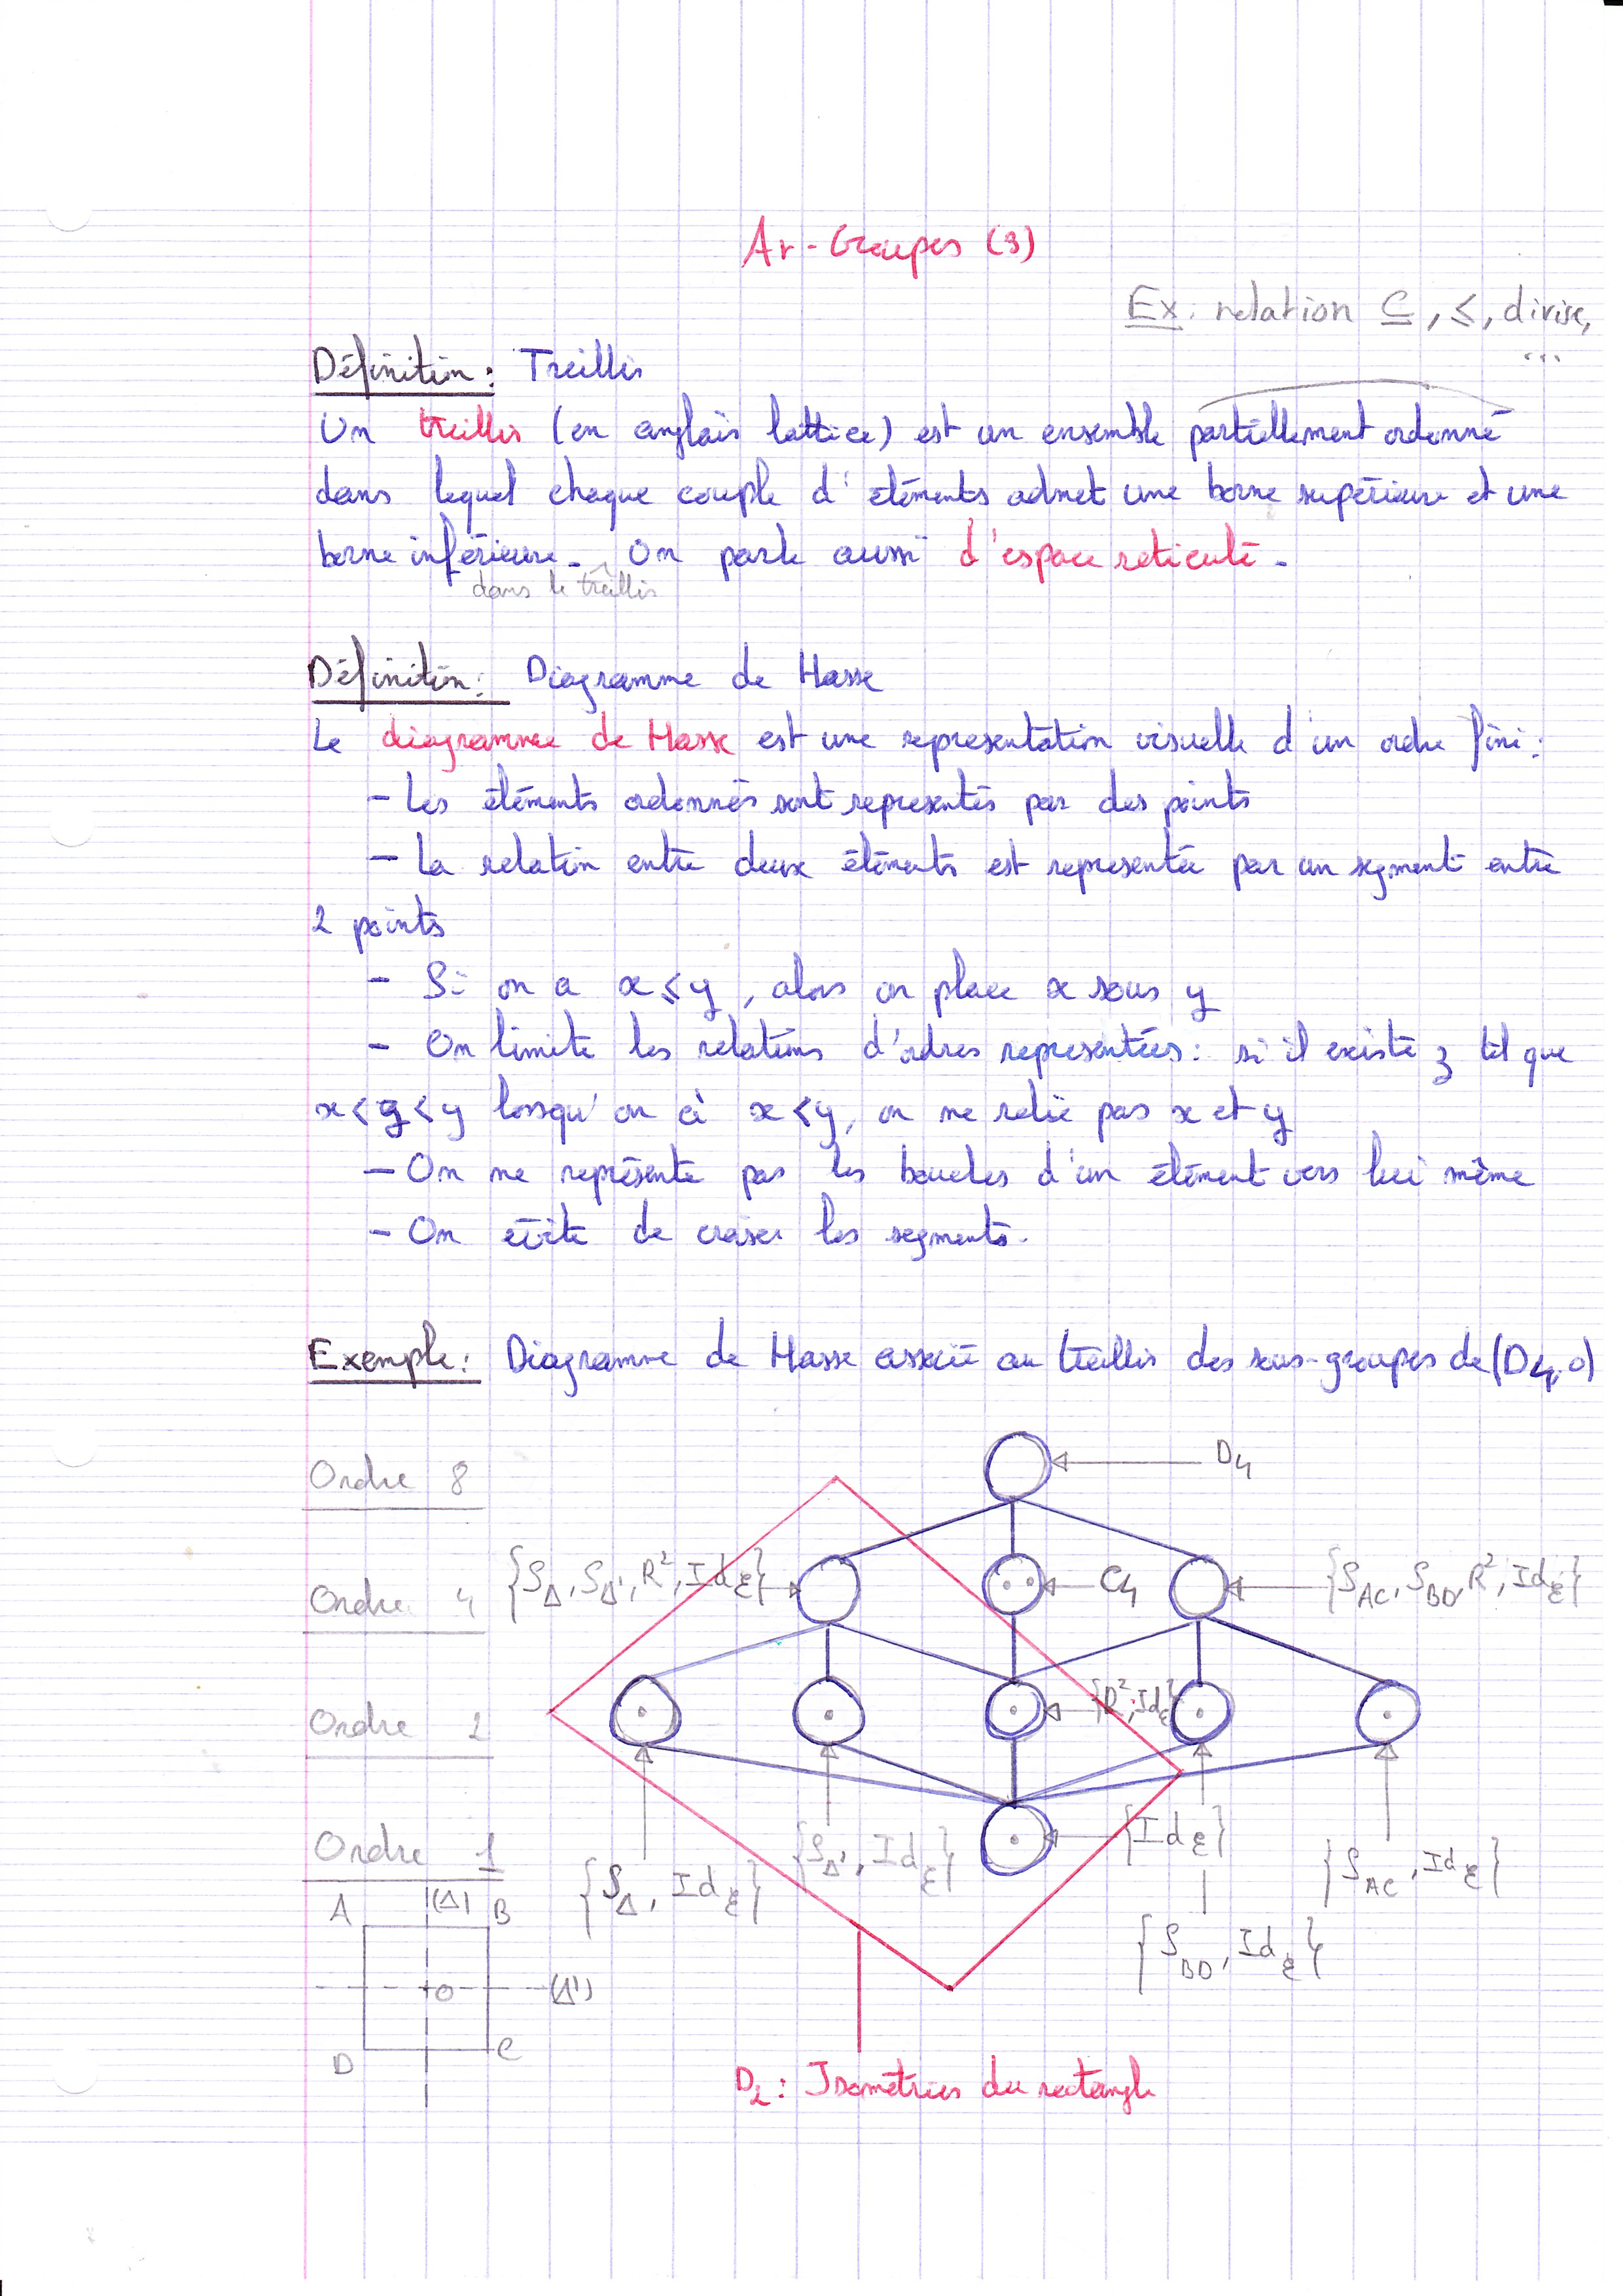 Ar-Groupes (3)
Ex: relation ⊆, ≤, divise,
...
Définition: Treillis
Un treillis (en anglais lattice) est un ensemble partiellement ordonné
dans lequel chaque couple d'éléments admet une borne supérieure et une
borne inférieure. On parle aussi d'espace reticulé.
dans le treillis
Définition: Diagramme de Hasse
Le diagramme de Hasse est une representation visuelle d'un ordre fini:
- Les éléments ordonnés sont representés par des points
- La relation entre deux éléments est representée par un segment entre
2 points
- Si on a x ≤ y, alors on place x sous y
- On limite les relations d'ordres representées: si il existe z tel que
x < z < y lorsqu'on à x < y, on ne relie pas x et y
- On ne représente pas les boucles d'un élément vers lui même
- On évite de croiser les segments.
Exemple: Diagramme de Hasse associé au treillis des sous-groupes de (D4, o)
Ordre 8 D4
Ordre 4 {S_Δ, S_Δ', R², Id_ε} C4 {S_AC, S_BD, R², Id_ε}
Ordre 2 {R², Id_ε}
Ordre 1 {S_Δ, Id_ε} {S_Δ', Id_ε} {Id_ε} {S_AC, Id_ε}
{S_BD, Id_ε}
A (Δ) B
O (Δ')
D C
D2: Isométries du rectangle